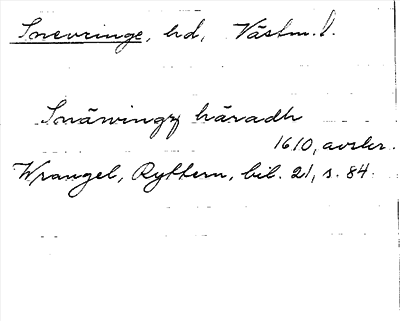 Snevringe, hd, Västm. l.
Snäwingz häradh
1610, avskr.
Wrangel, Ryttern, bil. 21, s. 84.